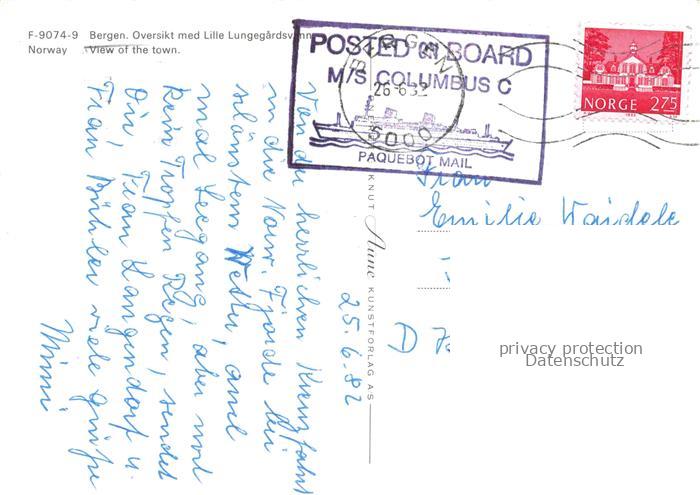 F-9074-9 Bergen. Oversikt med Lille Lungegårdsvann
Norway View of the town.
POSTED on BOARD
M/S COLUMBUS C
PAQUEBOT MAIL
BERGEN
26-6.82
5000
NORGE 275
Von der herrlichen Kreuzfahrt
in die Norw. Fjorde bei
schönstem Wetter, auch
mal Seegang, aber
kein Tropfen Regen, sendet
Dir, Frau Langendorf u.
Frau Bühler viele Grüße
Mimi
25.6.82
KNUT Aune KUNSTFORLAG AS
Frau
Emilie
D 7
privacy protection
Datenschutz